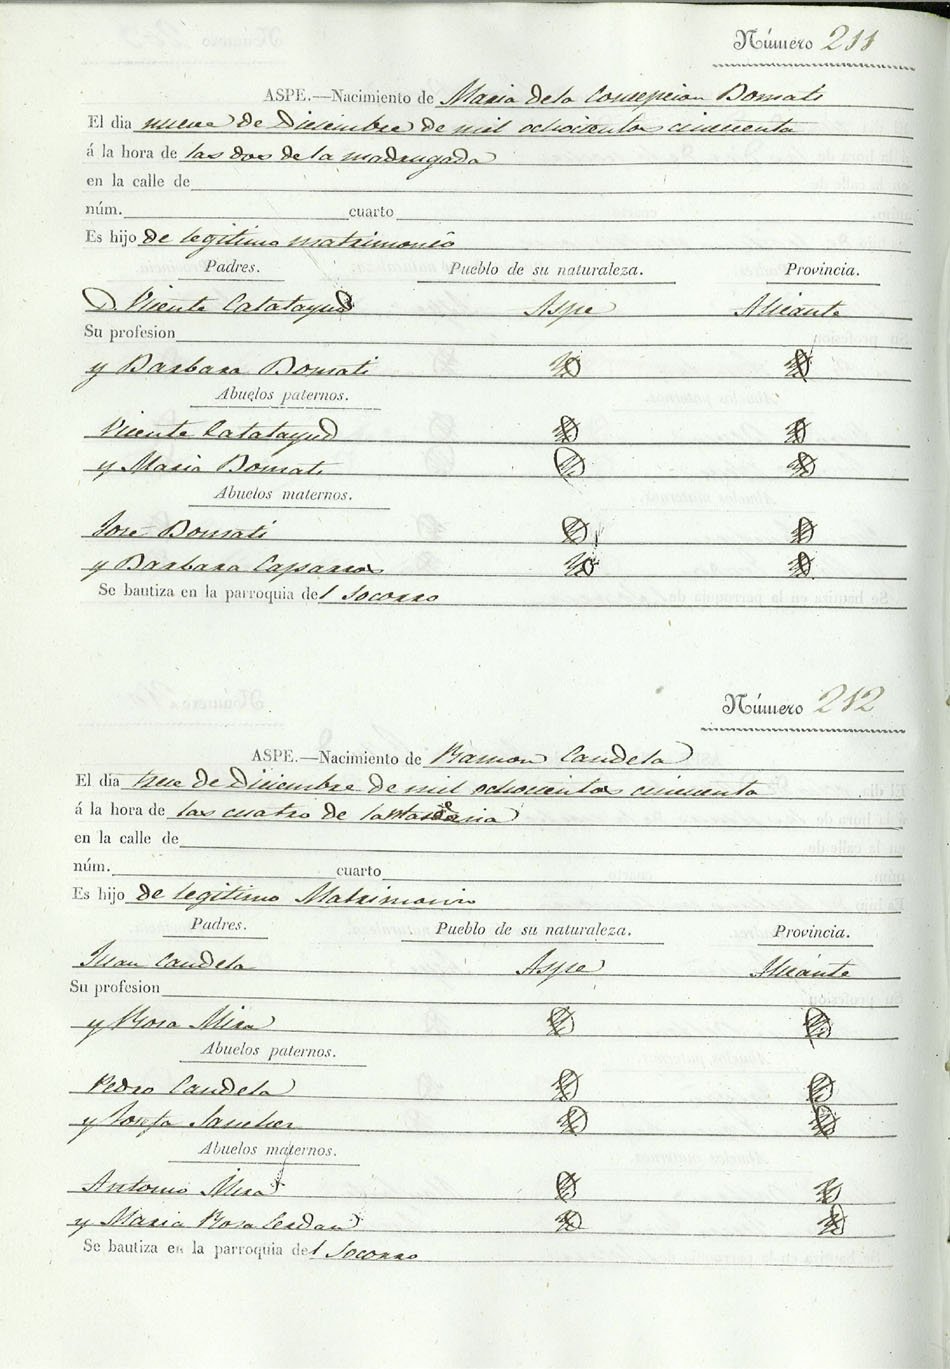 Número 211
ASPE.—Nacimiento de Maria dela Concepcion Bomati
El dia nueve de Diciembre de mil ochocientos cincuenta
á la hora de las dos de la madrugada
en la calle de
núm. cuarto
Es hijo de legitimo matrimonio
Padres. Pueblo de su naturaleza. Provincia.
D. Vicente Calatayud Aspe Alicante
Su profesion
y Barbara Bomati
Abuelos paternos.
Vicente Calatayud
y Maria Bomati
Abuelos maternos.
José Bomati
y Barbara Caparros
Se bautiza en la parroquia del Socorro
Número 212
ASPE.—Nacimiento de Ramon Candela
El dia trece de Diciembre de mil ochocientos cincuenta
á la hora de las cuatro de
en la calle de
núm. cuarto
Es hijo de legitimo Matrimonio
Padres. Pueblo de su naturaleza. Provincia.
Juan Candela Aspe Alicante
Su profesion
y Rosa Mira
Abuelos paternos.
Pedro Candela
y Josefa Sanchez
Abuelos maternos.
Antonio Mira
y Maria Rosa Cerdan
Se bautiza en la parroquia del Socorro